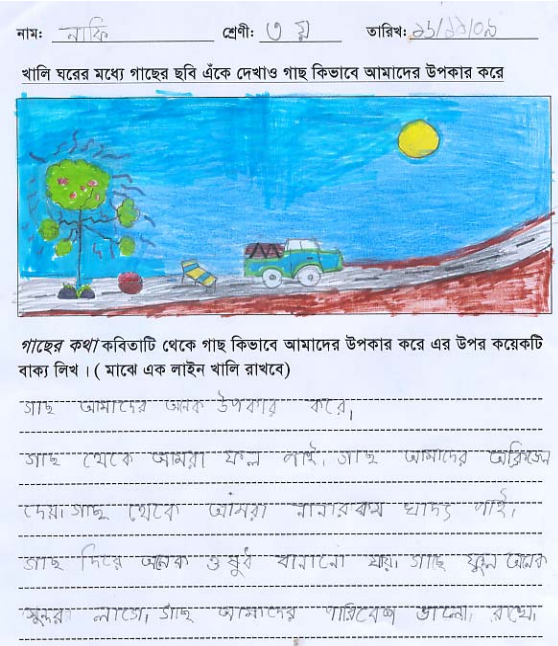 নাম: নাকি শ্রেণী: ৩ য় তারিখ: ১৬/১১/০৯
খালি ঘরের মধ্যে গাছের ছবি এঁকে দেখাও গাছ কিভাবে আমাদের উপকার করে
গাছের কথা কবিতাটি থেকে গাছ কিভাবে আমাদের উপকার করে এর উপর কয়েকটি
বাক্য লিখ । ( মাঝে এক লাইন খালি রাখবে)
গাছ আমাদের অনেক উপকার করে,
গাছ থেকে আমরা ফল পাই, গাছ আমাদের অক্সিজেন
দেয়। গাছ থেকে আমরা নানারকম খাদ্য পাই,
গাছ দিয়ে অনেক ওষুধ বানানো যায়। গাছে ফুল অনেক
সুন্দর লাগে, গাছ আমাদের পারিবেশ ভালো রাখে,